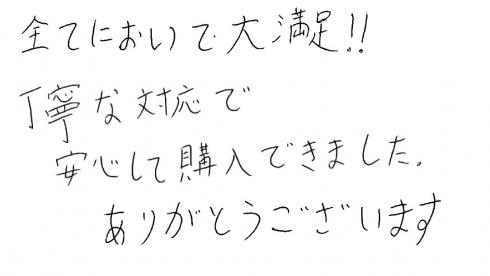 全てにおいて大満足!!
丁寧な対応で
安心して購入できました.
ありがとうございます